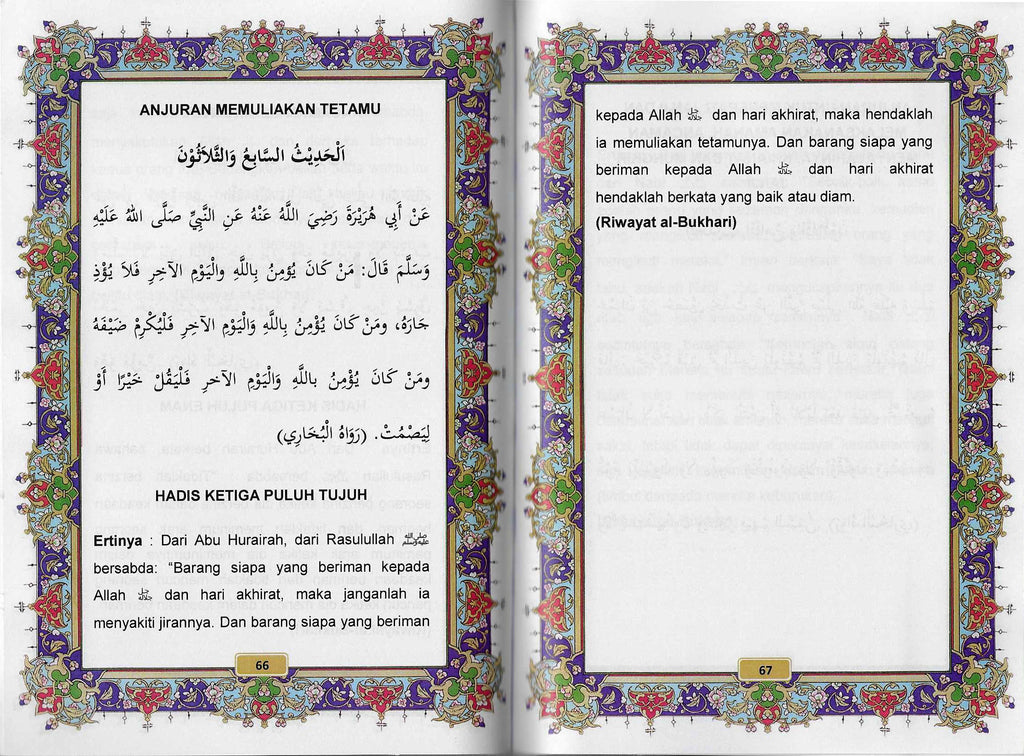 ANJURAN MEMULIAKAN TETAMU
اَلْحَدِيْثُ السَّابِعُ وَالثَّلاَثُوْنَ
عَنْ أَبِي هُرَيْرَةَ رَضِيَ اللَّهُ عَنْهُ عَنِ النَّبِيِّ صَلَّى اللهُ عَلَيْهِ
وَسَلَّمَ قَالَ: مَنْ كَانَ يُؤْمِنُ بِاللَّهِ والْيَوْمِ الآخِرِ فَلاَ يُؤْذِ
جَارَهُ، ومَنْ كَانَ يُؤْمِنُ بِاللَّهِ وَالْيَوْمِ الآخِرِ فَلْيُكْرِمْ ضَيْفَهُ
ومَنْ كَانَ يُؤْمِنُ باللَّهِ وَالْيَوْمِ الآخرِ فَلْيَقُلْ خَيْرًا أَوْ
لِيَصْمُتْ. (رَوَاهُ الْبُخَارِي)
HADIS KETIGA PULUH TUJUH
Ertinya : Dari Abu Hurairah, dari Rasulullah ﷺ
bersabda: “Barang siapa yang beriman kepada
Allah ﷻ dan hari akhirat, maka janganlah ia
menyakiti jirannya. Dan barang siapa yang beriman
66
kepada Allah ﷻ dan hari akhirat, maka hendaklah
ia memuliakan tetamunya. Dan barang siapa yang
beriman kepada Allah ﷻ dan hari akhirat
hendaklah berkata yang baik atau diam.
(Riwayat al-Bukhari)
67